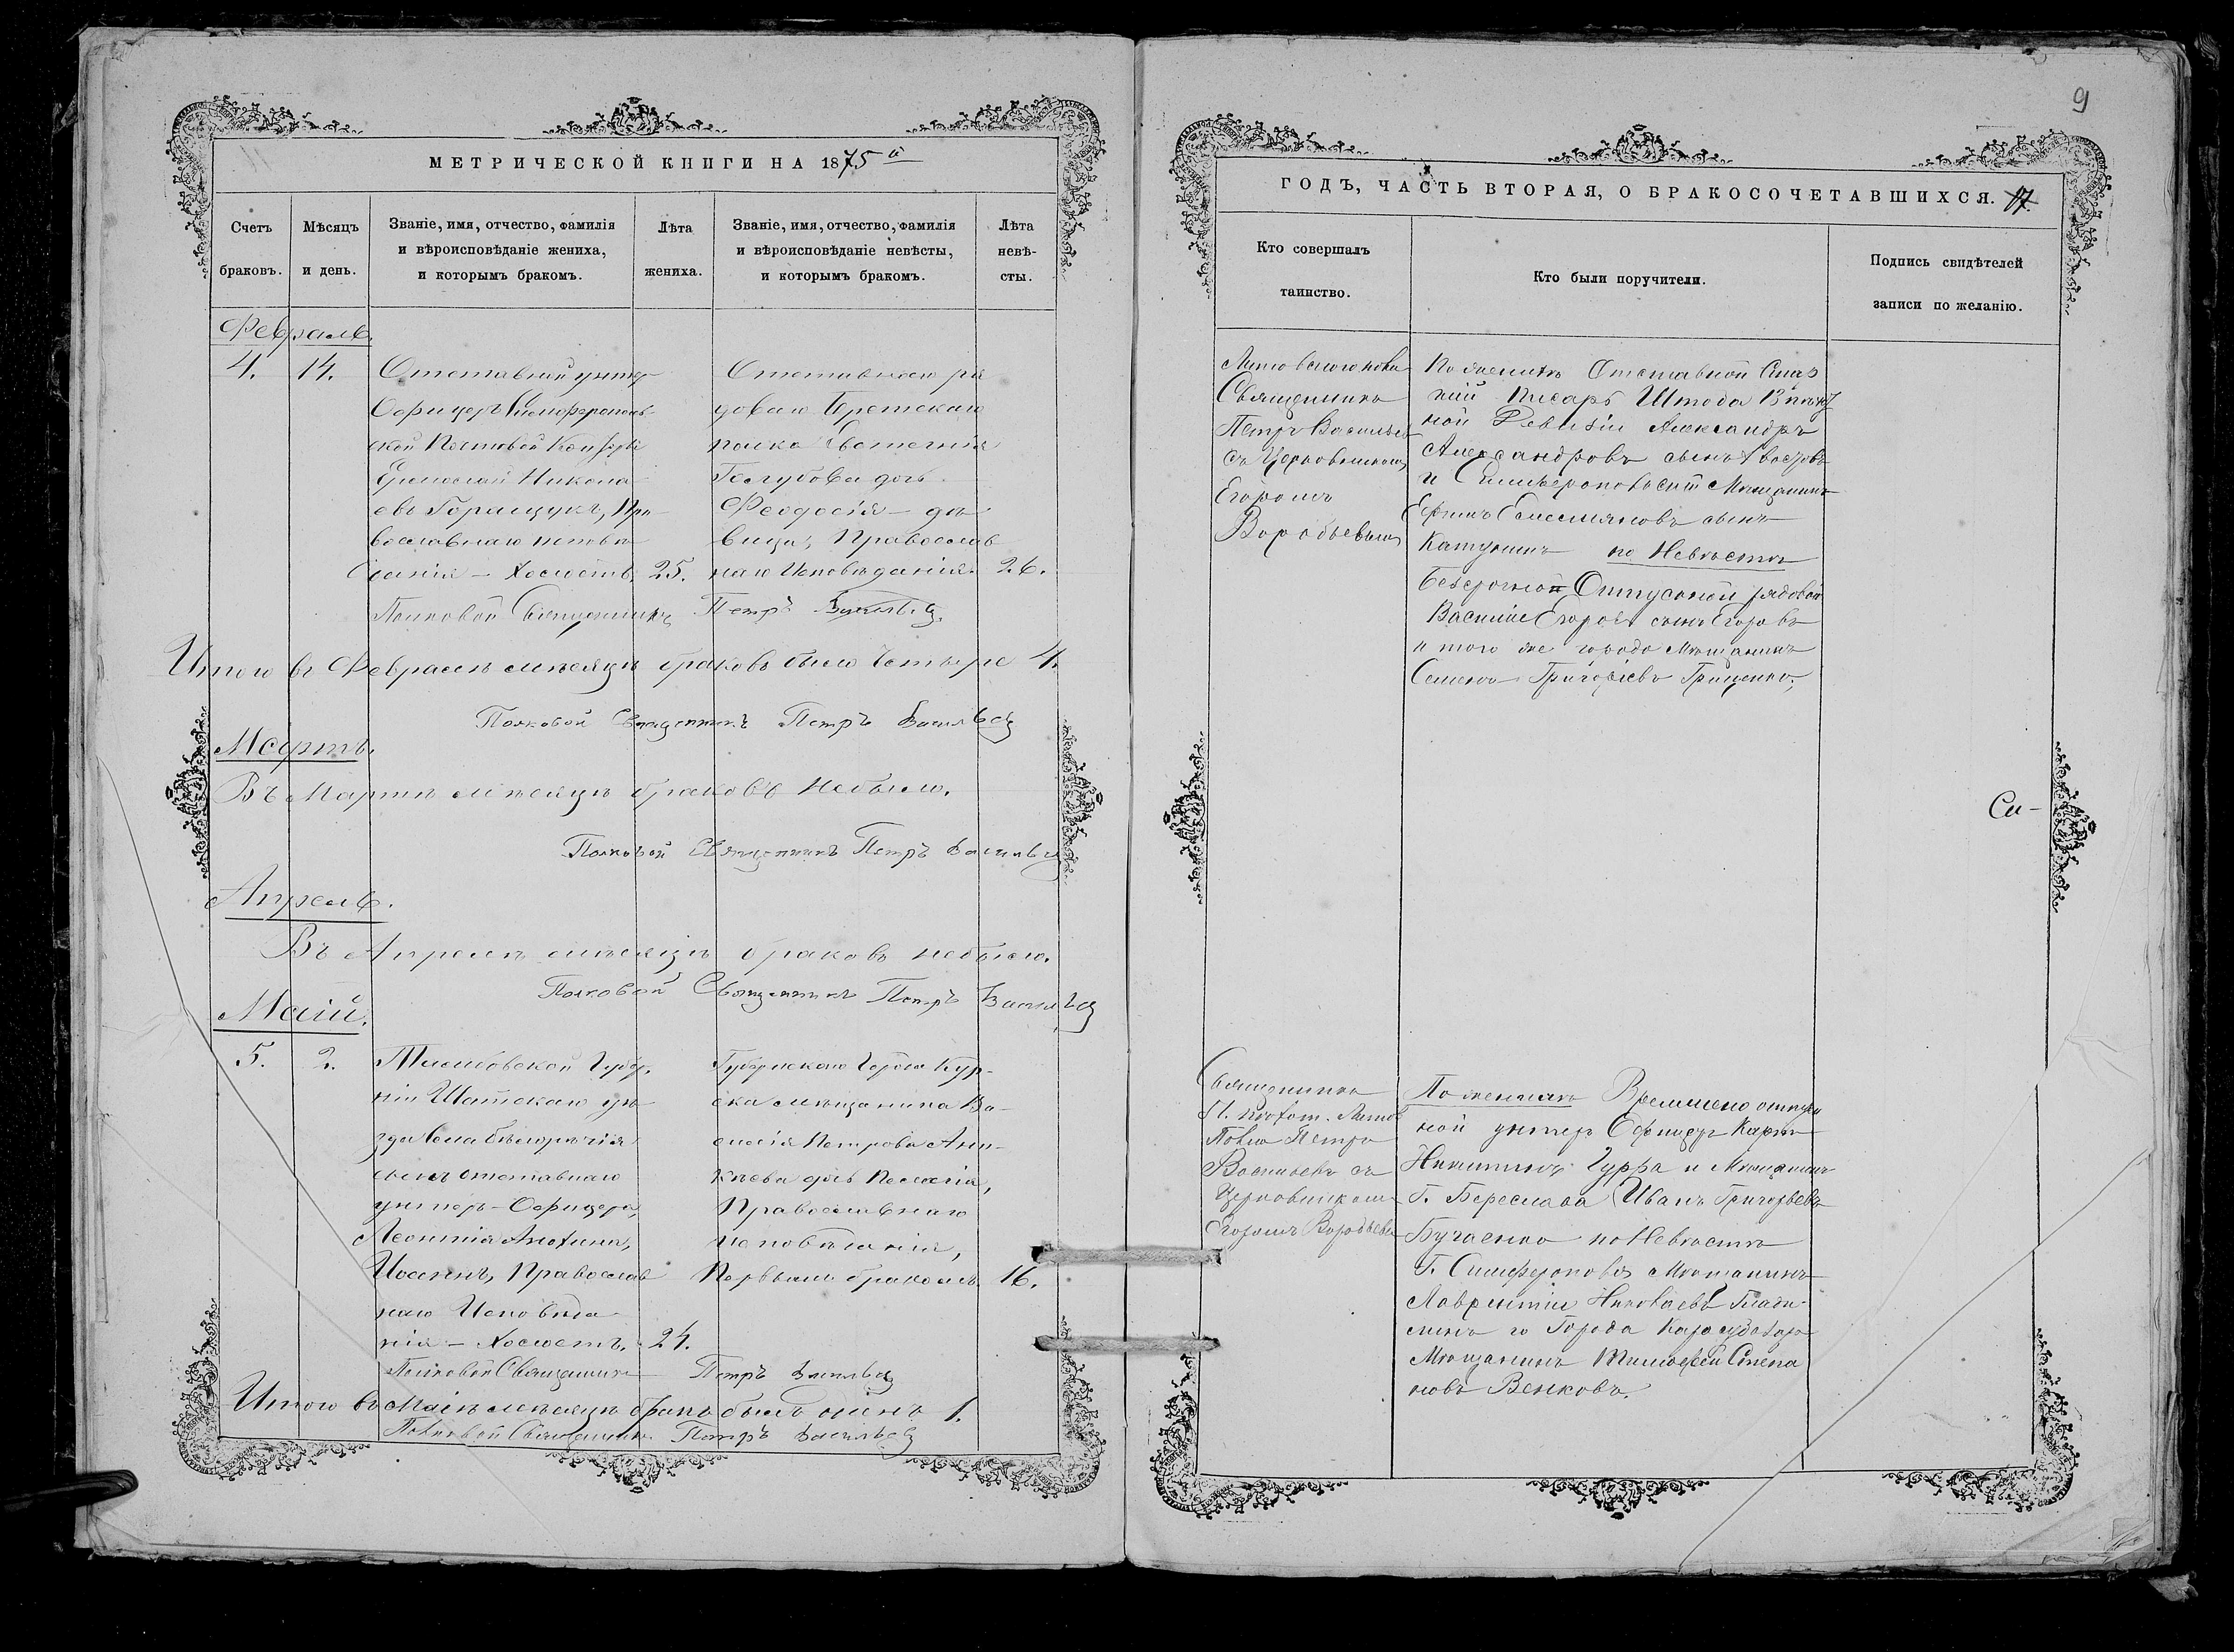 МЕТРИЧЕСКОЙ КНИГИ НА 1875й
Счетъ браковъ.
Мѣсяцъ и день.
Званіе, имя, отчество, фамилія и вѣроисповѣданіе жениха, и которымъ бракомъ.
Лѣта жениха.
Званіе, имя, отчество, фамилія и вѣроисповѣданіе невѣсты, и которымъ бракомъ.
Лѣта невѣ-сты.
Февраль.
4.
14.
Отставный унтер
Офицеръ Симферополь
ской Почтовой Конторы
Никола
евъ Горащукъ, Пра
вославнаго исповѣ
данія – Холостъ,
25.
Отставнаго ря
доваго Брестскаго
полка Евстигнія
Голубова дочь
Феодосія – дѣ
вица, Православ
наго Исповѣданія.
26.
Полковой Священникъ Петръ Васильев
Итого въ Февралѣ мѣсяцѣ браковъ было четыре 4.
Полковой Священникъ Петръ Васильев
Мартъ.
Въ Мартѣ мѣсяцѣ браковъ небыло.
Полковой Священникъ Петръ Васильев
Апрель.
Въ Апрелѣ мѣсяцѣ браковъ небыло.
Полковой Священникъ Петръ Васильев
Маій.
5.
2.
Тамбовской Губер
ніи Шатскаго уѣ
зда села
сынъ отставнаго
унтеръ-Офицера,
Леонтія Анохина,
Иоаннъ, Православ
наго Исповѣда
нія – Холостъ.
24.
Губернскаго Города Кур-
ска мѣщанина Ва-
силія Петрова Ани-
кѣева дочь Пелагія,
Православнаго
исповѣданія,
Первымъ бракомъ.
16.
Полковой Священникъ Петръ Васильев
Итого въ Маіѣ мѣсяцѣ бракъ былъ одинъ 1.
Полковой Священникъ Петръ Васильев
9
ГОДЪ, ЧАСТЬ ВТОРАЯ, О БРАКОСОЧЕТАВШИХСЯ. 17
Кто совершалъ таинство.
Кто были поручители.
Подпись свидѣтелей записи по желанію.
Литовскаго полка
Священникъ
Петръ Васильевъ
съ Церковникомъ
Егоромъ
Воробьевымъ
По женихѣ Отставной Стар
шій Писарь Штода
ной Ревизіи Александръ
Александровъ сынъ
и Симферопольскій Мѣщанинъ
Ефимъ Емельяновъ сынъ
Катунинъ по Невѣстѣ
безсрочно Отпускной рядовой
Василій Егоровъ сынъ Егоровъ
и того же города мѣщанинъ
Семенъ Григоріевъ Гриценко,
Си-
Священникъ
П. Литов
Полка Петръ
Васильевъ съ
Церковникомъ
Егоромъ Воробьевы
По женихѣ Временно отпуск
ной унтеръ Офицеръ Карпъ
Никитинъ Гурра и Мѣщанинъ
Г. Береслава Иванъ Григорьевъ
Бучаенко по Невѣстѣ
Г. Симферополя Мѣщанинъ
Лаврентій Николаевъ
Города Карасубазара
Мѣщанинъ Тимофей Степа
новъ Венковъ.